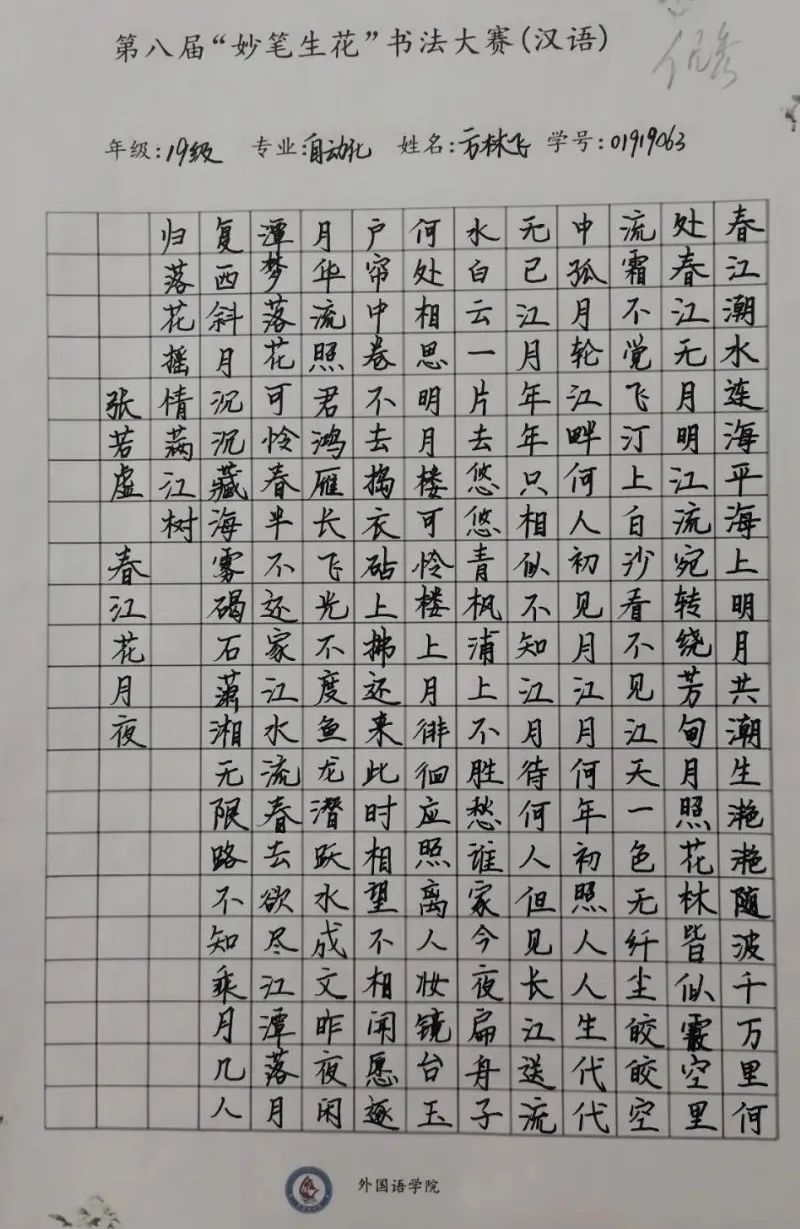 第八届“妙笔生花”书法大赛(汉语)
优秀
年级:19级 专业:自动化 姓名:方林飞 学号:01919063
春江潮水连海平海上明月共潮生滟滟随波千万里何
处春江无月明江流宛转绕芳甸月照花林皆似霰空里
流霜不觉飞汀上白沙看不见江天一色无纤尘皎皎空
中孤月轮江畔何人初见月江月何年初照人人生代代
无已江月年年只相似不知江月待何人但见长江送流
水白云一片去悠悠青枫浦上不胜愁谁家今夜扁舟子
何处相思明月楼可怜楼上月徘徊应照离人妆镜台玉
户帘中卷不去捣衣砧上拂还来此时相望不相闻愿逐
月华流照君鸿雁长飞光不度鱼龙潜跃水成文昨夜闲
潭梦落花可怜春半不还家江水流春去欲尽江潭落月
复西斜月沉沉藏海雾碣石萧湘无限路不知乘月几人
归落花摇情满江树
张若虚 春江花月夜
外国语学院